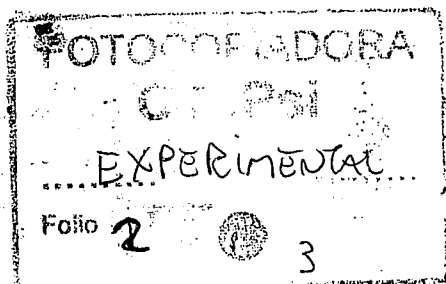 FOTOCOPIADORA
Psi
EXPERIMENTAL
Folio 2
3